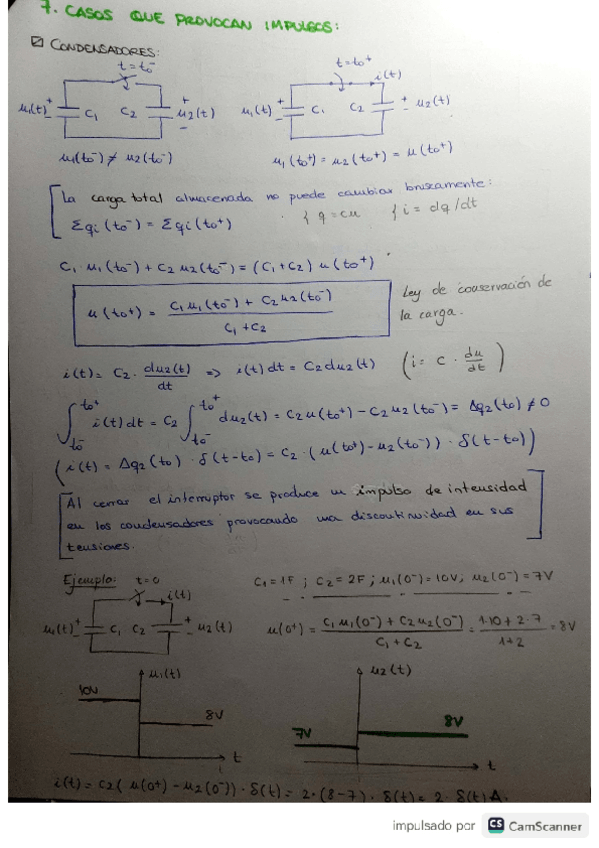 7. CASOS QUE PROVOCAN IMPULSOS:
☑ CONDENSADORES:
t=t0⁻
t=t0⁺
i(t)
u1(t) + C1 C2 + u2(t) −
u1(t) + C1 C2 + u2(t) −
u1(t0⁻) ≠ u2(t0⁻)
u1(t0⁺) = u2(t0⁺) = u(t0⁺)
La carga total almacenada no puede cambiar bruscamente:
Σqi(t0⁻) = Σqi(t0⁺) { q = cu { i = dq/dt
C1 · u1(t0⁻) + C2 u2(t0⁻) = (C1+C2) u(t0⁺)
u(t0⁺) = (C1 u1(t0⁻) + C2 u2(t0⁻)) / (C1 + C2)
Ley de conservación de
la carga.
i(t) = C2 · du2(t)/dt ⇒ i(t) dt = C2 du2(t) (i = C · du/dt)
∫t0⁻^t0⁺ i(t) dt = C2 ∫t0⁻^t0⁺ du2(t) = C2 u(t0⁺) − C2 u2(t0⁻) = Δq2(t0) ≠ 0
(i(t) = Δq2(t0) · δ(t−t0) = C2 · (u(t0⁺) − u2(t0⁻)) · δ(t−t0))
Al cerrar el interruptor se produce un impulso de intensidad
en los condensadores provocando una discontinuidad en sus
tensiones.
Ejemplo: t=0
i(t)
C1 = 1F ; C2 = 2F ; u1(0⁻) = 10V ; u2(0⁻) = 7V
u1(t) + C1 C2 + u2(t) −
u(0⁺) = (C1 u1(0⁻) + C2 u2(0⁻)) / (C1 + C2) = (1·10 + 2·7) / (1+2) = 8V
u1(t)
10V
8V
t
u2(t)
7V
8V
t
i(t) = C2 (u(0⁺) − u2(0⁻)) · δ(t) = 2 · (8−7) · δ(t) = 2 · δ(t) A.
impulsado por CS CamScanner